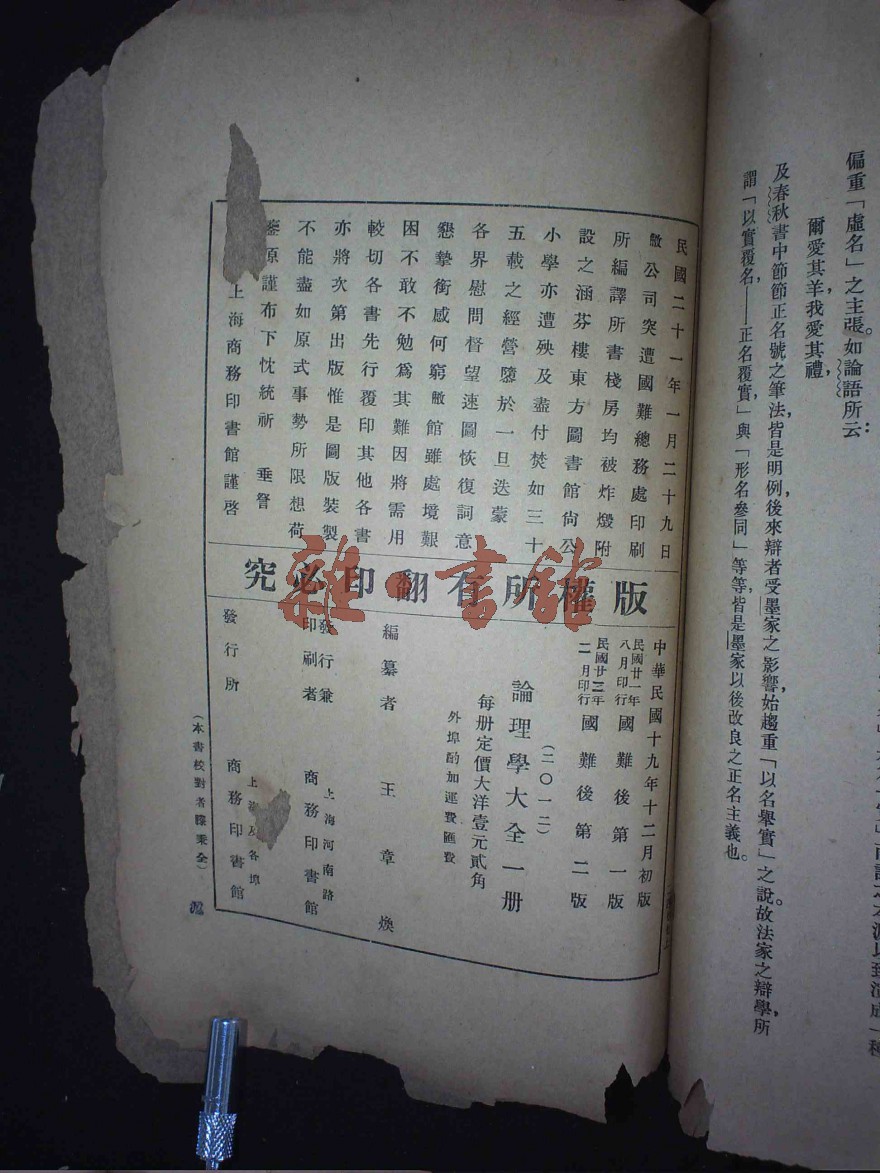 偏重「虛名」之主張。如論語所云:
爾愛其羊,我愛其禮,
及春秋書中節節正名號之筆法,皆是明例,後來辯者受墨家之影響,始趨重「以名舉實」之說。故法家之辯學,所
謂「以實覆名,——正名覆實,」與「形名參同」等等,皆是墨家以後改良之正名主義也。
民國二十一年一月二十九日
敝公司突遭國難總務處印刷
所編譯所書棧房均被炸燬附
設之涵芬樓東方圖書館尙公
小學亦遭殃及盡付焚如三十
五載之經營隳於一旦迭蒙
各界慰問督望速圖恢復詞意
懇摯銜感何窮敝館雖處境艱
困不敢不勉爲其難因將需用
較切各書先行覆印其他各書
亦將次第出版惟是圖版裝製
不能盡如原式事勢所限想荷
鑒原謹布下忱統祈 垂詧
上海商務印書館謹啓
版權所有翻印必究
中華民國十九年十二月初版
民國廿一年八月印行國難後第一版
民國廿三年二月印行國難後第二版
(二〇一二)
論理學大全一册
每册定價大洋壹元貳角
外埠酌加運費匯費
編纂者 王章煥
發行兼印刷者 上海河南路 商務印書館
發行所 上海及各埠 商務印書館
(本書校對者 秉全)
雜·書館